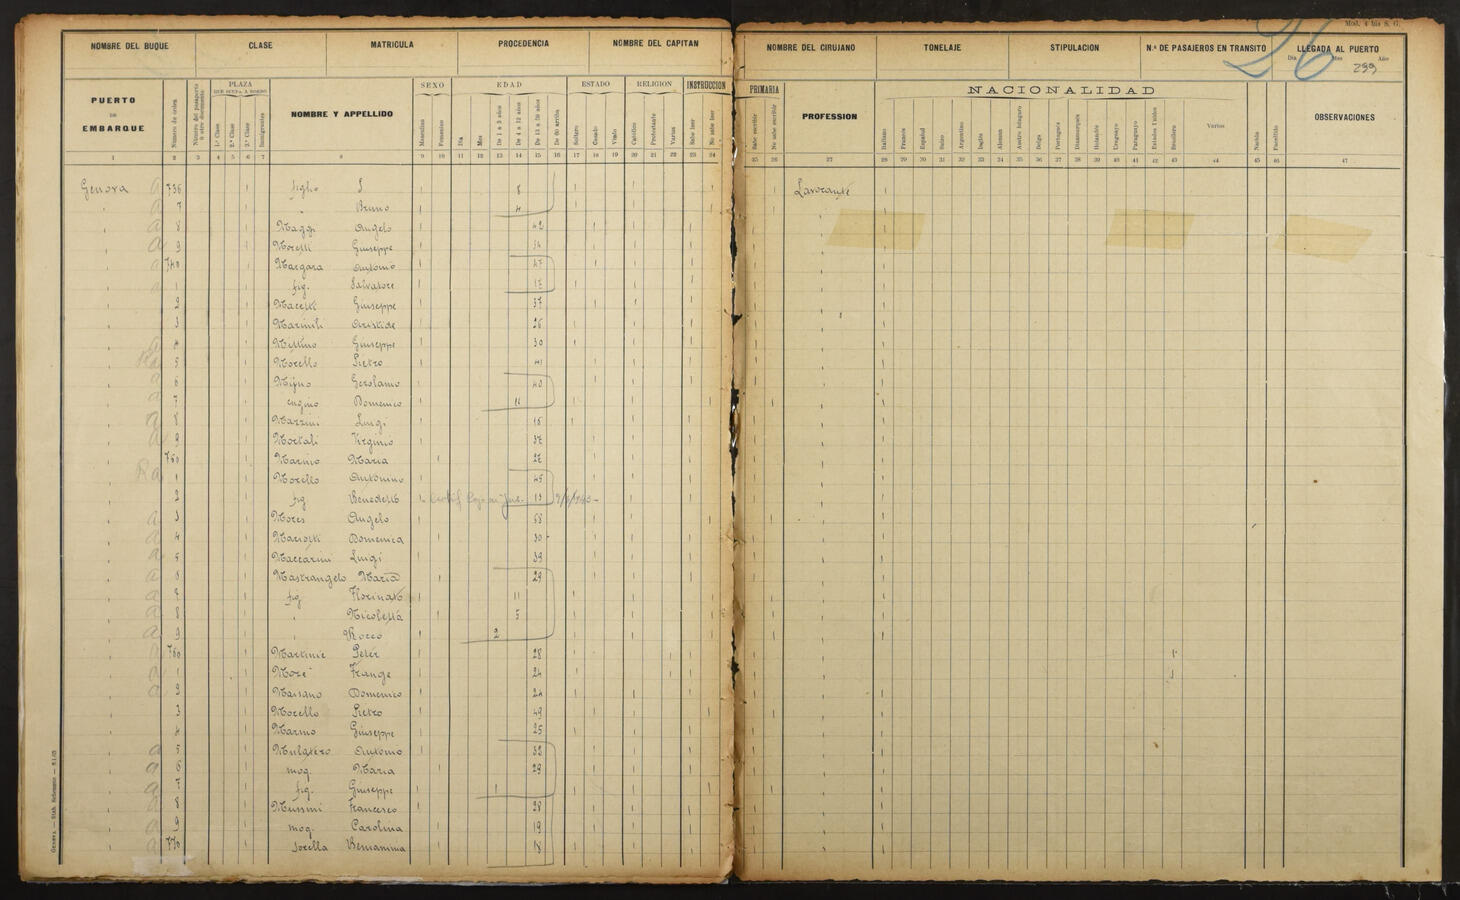 Mod. 4 bis S. G.
26
299
NOMBRE DEL BUQUE CLASE MATRICULA PROCEDENCIA NOMBRE DEL CAPITAN NOMBRE DEL CIRUJANO TONELAJE STIPULACION N.º DE PASAJEROS EN TRANSITO LLEGADA AL PUERTO
Dia Mes Año
PUERTO DE EMBARQUE
Número de orden
PLAZA
QUE OCUPA A BORDO
1.ª Clase
2.ª Clase
3.ª Clase
Inmigrantes
NOMBRE Y APPELLIDO
SEXO
Masculino
Femenino
EDAD
Dia
Mes
De 1 a 3 años
De 4 a 12 años
De 13 a 59 años
De 60 arriba
ESTADO
Soltero
Casado
Viudo
RELIGION
Católico
Protestante
Varias
INSTRUCCION PRIMARIA
Sabe leer
No sabe leer
Sabe escribir
No sabe escribir
PROFESSION
NACIONALIDAD
Italiano
Francés
Español
Suizo
Argentino
Inglés
Aleman
Austro húngaro
Belga
Portugués
Dinamarqués
Holandés
Uruguayo
Paraguayo
Estados Unidos
Brasilero
Varios
Nacido
Fanelido
OBSERVACIONES
1 2 3 4 5 6 7 8 9 10 11 12 13 14 15 16 17 18 19 20 21 22 23 24 25 26 27 28 29 30 31 32 33 34 35 36 37 38 39 40 41 42 43 44 45 46 47
Genova a 736 figlio 8 Lavorante
7 Bruno 4
8 Maggi Angelo 42
9 Moretti Giuseppe 34
740 Margara Antonio 47
1 fig. Salvatore 17
2 Macetti Giuseppe 37
3 Aristide 26
4 Mettino Giuseppe 30
5 Morello Pietro 41
6 Gerolamo 40
7 cugino Domenico 11
8 Mazzini Luigi
9 Mortali Virginio 37
750 Marino Maria 27
1 Morello Antonino 45
2 fig Benedetto 13
3 Mores Angelo 58
4 Mariotti Domenica 30
5 Maccarini Luigi 39
6 Mastrangelo Maria 29
7 fig Florinato 11
8 Nicoletta 5
9 Rocco 2
760 Martinic Peter 28
1 More Frange 24
2 Marsano Domenico 24
3 Morello Pietro 49
4 Marino Giuseppe 25
5 Mulatero Antonio 32
6 mog. Maria 29
7 fig. Giuseppe 1
8 Mussini Francesco 28
9 mog. Carolina 19
770 sorella Beniamina 18